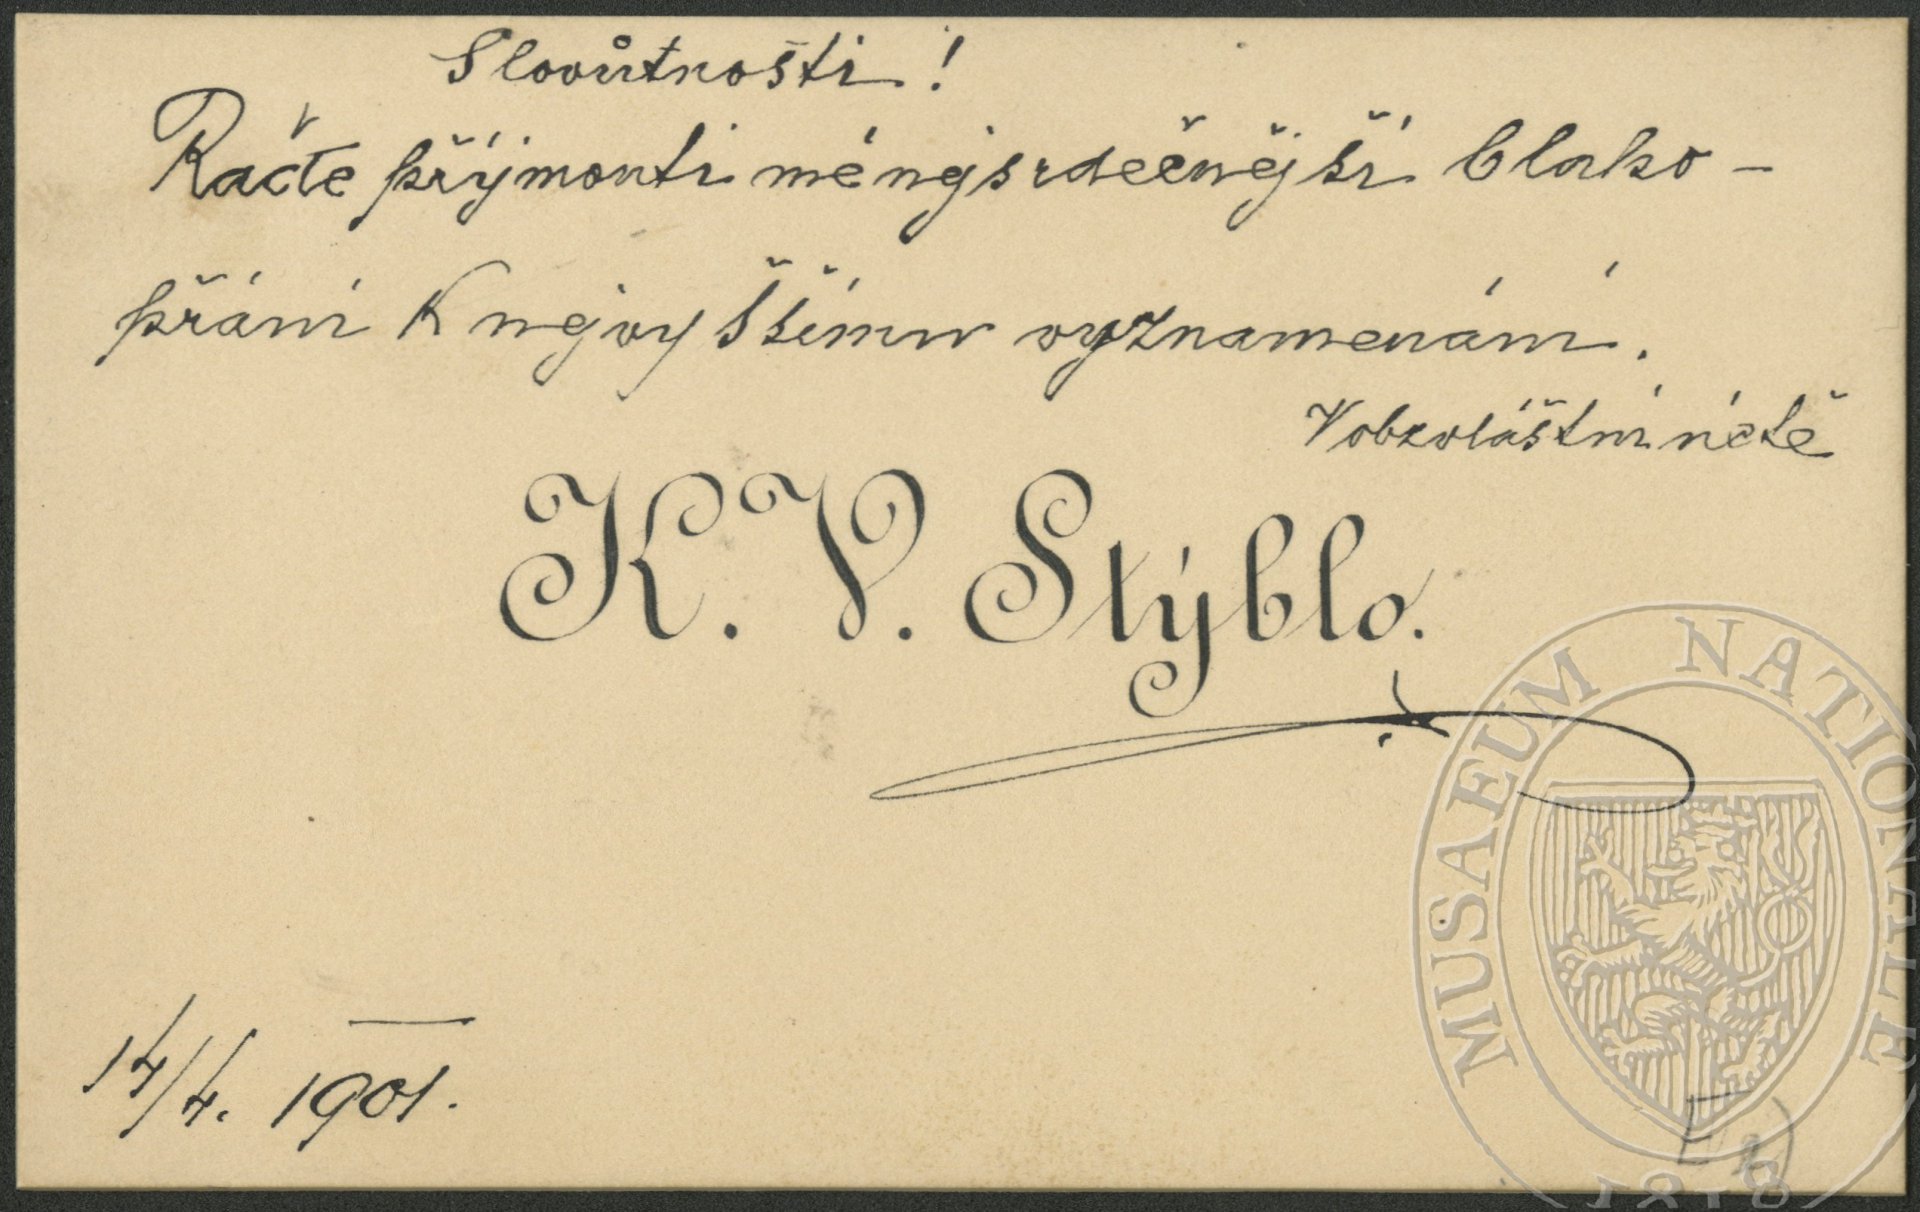 Slovůtnosti!
Račte přijmonti mé nejsrdečnější blaho-
přání K nejvyššímu vyznamenání.
V obzvláštní úctě
K. V. Stýblo.
14/4. 1901.
MUSAEUM NATIONALE
1818